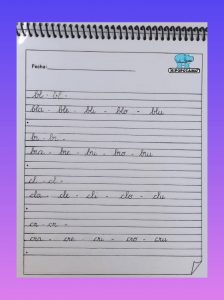 Fecha:
bl - bl -
bla - ble - bli - blo - blu
br - br -
bra - bre - bri - bro - bru
cl - cl -
cla - cle - cli - clo - clu
cr - cr -
cra - cre - cri - cro - cru